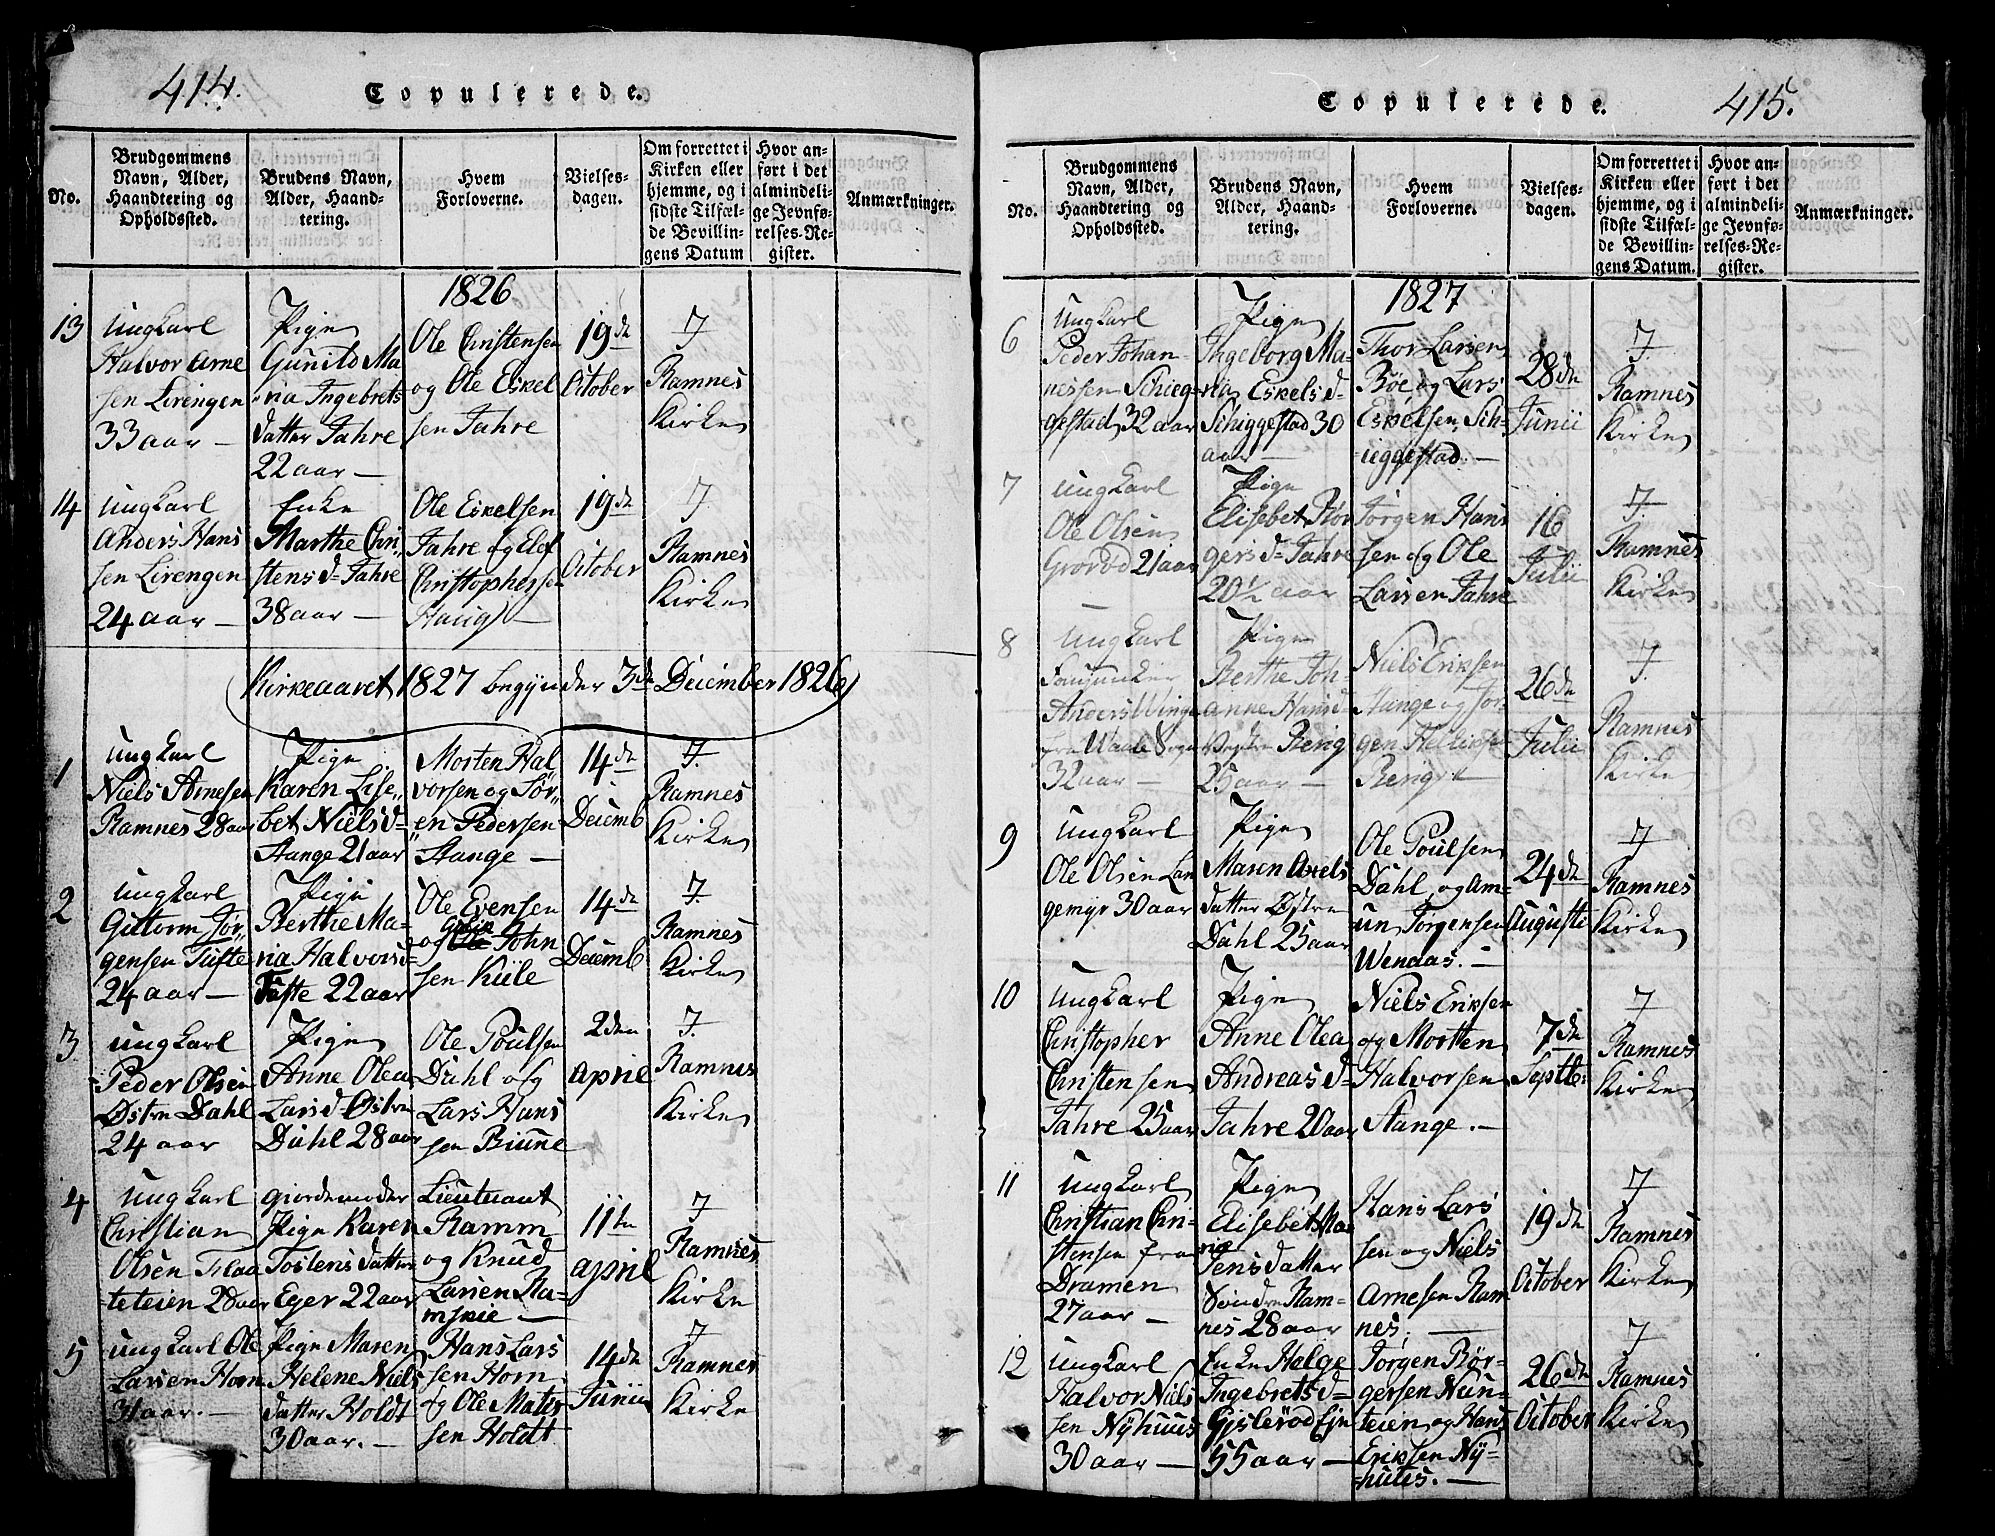 414.
Copulerede.
No.
Brudgommens
Navn, Alder,
Haandtering og
Opholdssted.
Brudens Navn,
Alder, Haand-
tering.
Hvem
Forloverne.
Vielses-
dagen.
Om forrettet i
Kirken eller
hjemme, og i
sidste Tilfæl-
de Bevillin-
gens Datum
Hvor an-
ført i det
almindeli-
ge Jevnfø-
relses-Re-
gister.
Anmærkninger.
1826
13
Ungkarl
Halvor Arne
sen Lirengen
33 aar —
Pige
Gunild Ma
ria Ingebrets
datter Jahre
22 aar —
Ole Christensen
og Ole Eskel
sen Jahre
19de
October
I
Ramnes
Kirke
14
Ungkarl
Anders Hans
sen Lirengen
24 aar —
Enke
Marthe Chri„
stensd= Jahre
38 aar —
Ole Eskelsen
Jahre og Elef
Christophersen
Haug —
19de
October
I
Ramnes
Kirke
Kirkeaaret 1827 begynder 3de December 1826
1
Ungkarl
Niels Arnesen
Ramnes 28 aar
Pige
Karen Lise„
bet Nielsd=
Stange 21 aar
Morten Hal
vorsen og Sör„
en Pedersen
Stange —
14de
Decemb
I
Ramnes
Kirke
2
Ungkarl
Guttorm Jör„
gensen Tufte
24 aar —
Pige
Berthe Ma-
ria Halvorsd=
Tufte 22 aar
Ole Evensen
og John
sen Kiile
14de
Decemb
I
Ramnes
Kirke
3
Ungkarl
Peder Olsen
Østre Dahl
24 aar
Pige
Anne Olea
Larsd= Østre
Dahl 28 aar
Ole Poulsen
Dahl og
Lars Hans
sen Biune
2den
April
I.
Ramnes
Kirke
4
Ungkarl
Christian
Olsen Flaa
teteien 28 aar
giordemoder
Pige Karen
Tostens datter
Eger 22 aar
Lieutnant
Ramm
og Knud
Larsen Ra-
mskie —
11te
April
I
Ramnes
Kirke
5
Ungkarl Ole
Larsen Horn
31 aar. —
Pige Maren
Helene Niels
datter Holdt
30 aar. —
Hans Lars
sen Horn
og Ole Mates
sen Holdt
14de
Junii
I
Ramnes
Kirke
415.
Copulerede.
No.
Brudgommens
Navn, Alder,
Haandtering og
Opholdssted.
Brudens Navn,
Alder, Haand-
tering.
Hvem
Forloverne.
Vielses-
dagen.
Om forrettet i
Kirken eller
hjemme, og i
sidste Tilfæl-
de Bevillin-
gens Datum.
Hvor an-
ført i det
almindeli-
ge Jevnfø-
relses-Re-
gister.
Anmærkninger.
1827
6
Ungkarl
Peder Johan-
nessen Schieg-
gestad 32 aar
Pige
Ingeborg Ma-
ria Eskelsd=
Schiggestad 30
aar —
Thor Larsen
Böe og Lars
Eskelsen, Sch-
ieggestad. —
28de
Junii
I.
Ramnes
Kirke
7
Ungkarl
Ole Olsen
Grorød 21 aar
—
Pige
Elisebet Bör
gersd= Jahre
20½ aar
Jörgen Hans
sen og Ole
Larsen Jahre
16
Julii
I
Ramnes
Kirke
8
Ungkarl
Anders Winge
fra Waale Sogn
32 aar —
Pige
Berthe Joh-
anne Hansd=
Reng
25 aar —
Niels Eriksen
Stange og Jör-
gen
Reng —
26de
Julii
I.
Ramnes
Kirke
9
Ungkarl
Ole Olsen Lan
gemyr 30 aar
Pige
Maren Axels
datter Østre
Dahl 25 aar
Ole Poulsen
Dahl og Am-
un Torgensen
Wenaas. —
24de
Augusti
I
Ramnes
Kirke
10
Ungkarl
Christopher
Christensen
Jahre 25 aar
Pige
Anne Olea
Andreasd=
Jahre 20 aar
Niels Eriksen
og Morten
Halvorsen
Stange. —
7de
Septbr
I
Ramnes
Kirke
11
Ungkarl
Christian Chri-
stensen fra
Dramen
27 aar —
Pige
Elisebet Ma
ria
Jensdatter
Søndre Ram-
nes 28 aar
Hans Lars
sen og Niels
Arnesen Ram
nes. —
19de
October
I
Ramnes
Kirke
12
Ungkarl
Halvor Niels
sen Nÿhuus
30 aar —
Enke Helge
Ingebretsd=
Gislerød Eje
55 aar —
Jörgen Bör-
gersen Nun-
teien og Hans
Eriksen Nÿ-
huus. —
26de
October
I
Ramnes
Kirke